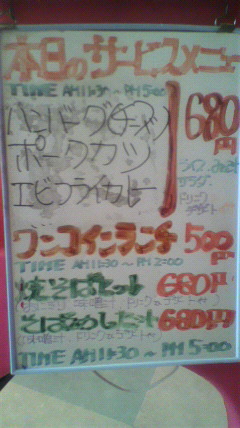 本日のサービスメニュー
TIME AM11:30～PM5:00
ハンバーグ(チーズ)
ポークカツ
エビフライカレー
680円
ライス、みそ汁
サラダ、
ドリンク
デザート
ワンコインランチ 500円
TIME AM11:30～PM2:00
焼そばセット 680円
そばめしセット 680円
TIME AM11:30～PM5:00